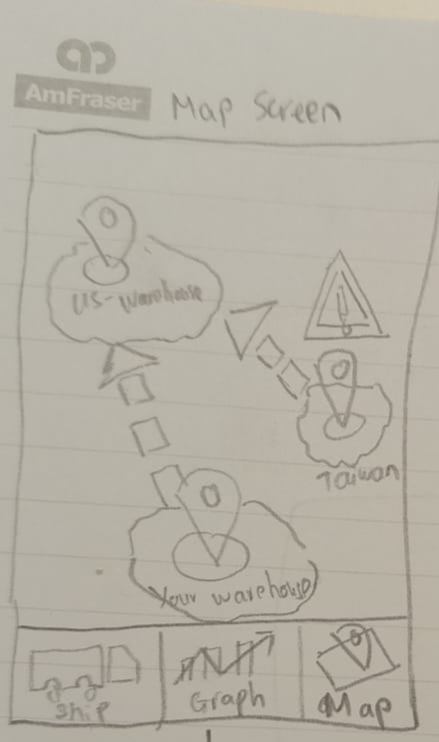 AmFraser
Map Screen
US-Warehouse
Taiwan
Your warehouse
Ship
Graph
Map